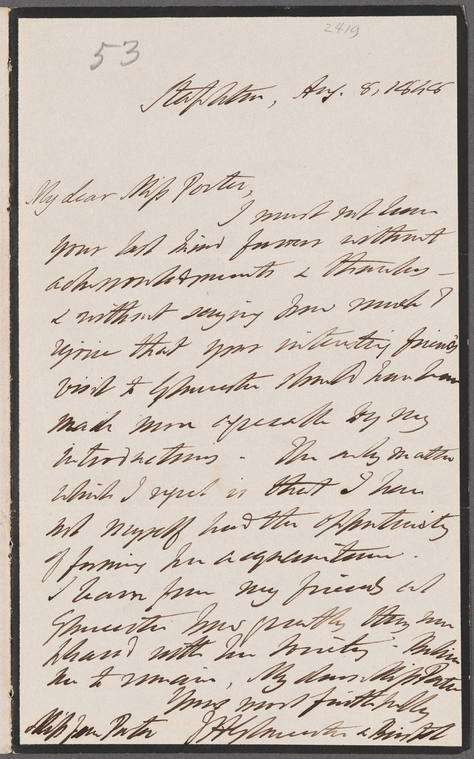 53
2419
Stapleton, Aug. 8, 1848
My dear Miss Porter,
I must not leave
your last kind favour without
acknowledgments & thanks -
& without saying how much I
rejoice that your interesting friend's
visit to Gloucester should have been
made more agreeable by my
introductions - The only matter
which I regret is that I have
not myself had the opportunity
of forming her acquaintance.
I learn from my friends at
Gloucester how greatly they were
pleased with her society - Believe
me to remain, My dear Miss Porter
Yours most faithfully
Miss Jane Porter J H Gloucester & Bristol